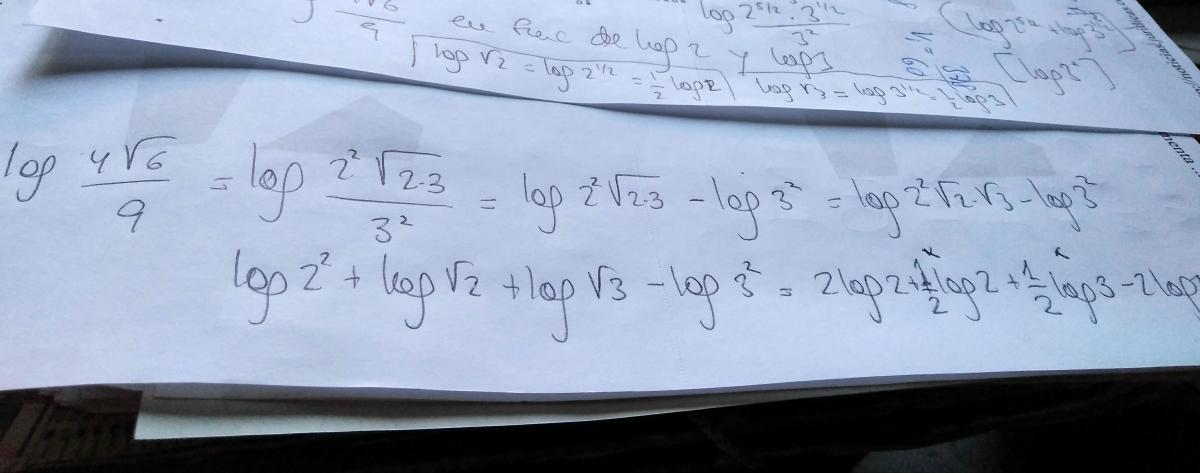 √6/9 en func de log 2 y log 3
log 2^5/2 · 3^1/2 / 3²
(log 2^5/2 + log 3
[log 3²]
log √2 = log 2^1/2 = 1/2 log 2
log √3 = log 3^1/2 = 1/2 log 3
log 4√6/9 = log 2²√2·3/3² = log 2²√2·3 - log 3² = log 2²√2·√3 - log 3²
log 2² + log √2 + log √3 - log 3² = 2 log 2 + 1/2 log 2 + 1/2 log 3 - 2 log